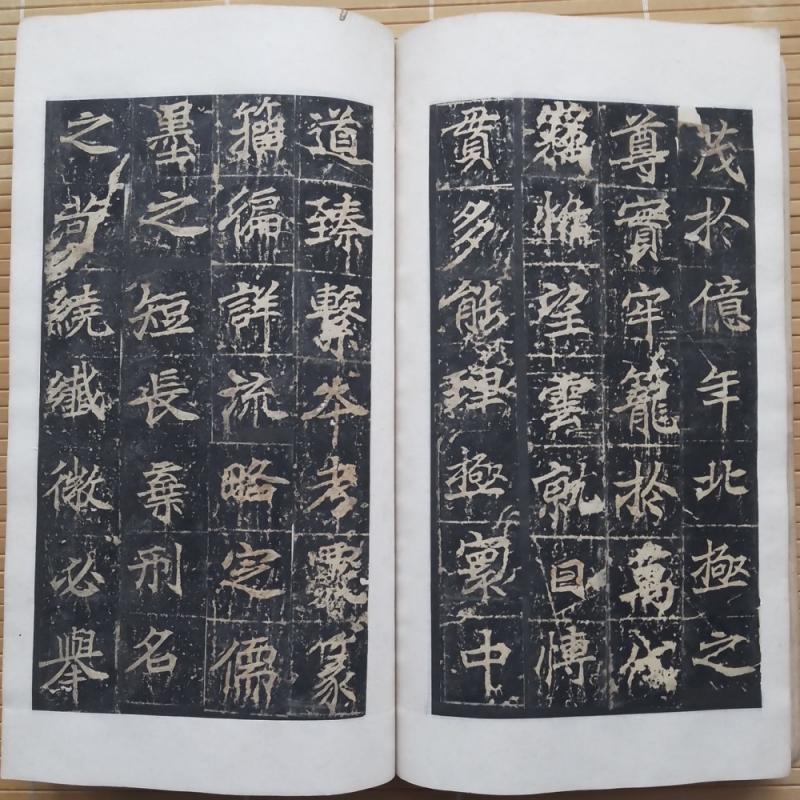 茂於億年北極之
尊實牢籠於萬代
巍惟望雲就日博
貫多能理極寰中
道臻繫本考覈篆
籀徧詳流略定儒
墨之短長棄刑名
之苛繞纖微必舉